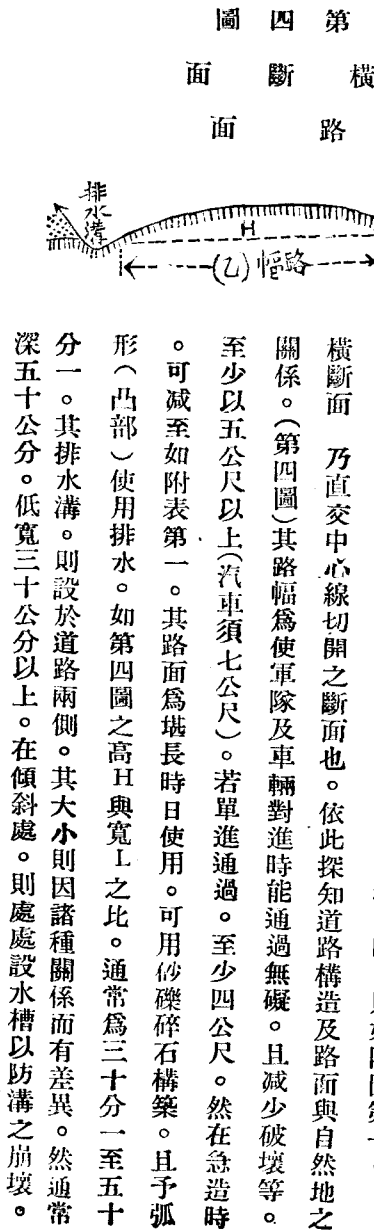 第四圖
橫斷面
路面
排水溝
H
路幅(乙)
橫斷面　乃直交中心線切開之斷面也。依此探知道路構造及路面與自然地之
關係。(第四圖)其路幅爲使軍隊及車輛對進時能通過無礙。且減少破壞等。
至少以五公尺以上(汽車須七公尺)。若單進通過。至少四公尺。然在急造時
。可減至如附表第一。其路面爲堪長時日使用。可用砂礫碎石構築。且予弧
形(凸部)使用排水。如第四圖之高H與寬L之比。通常爲三十分一至五十
分一。其排水溝。則設於道路兩側。其大小則因諸種關係而有差異。然通常
深五十公分。低寬三十公分以上。在傾斜處。則處處設水槽以防溝之崩壞。